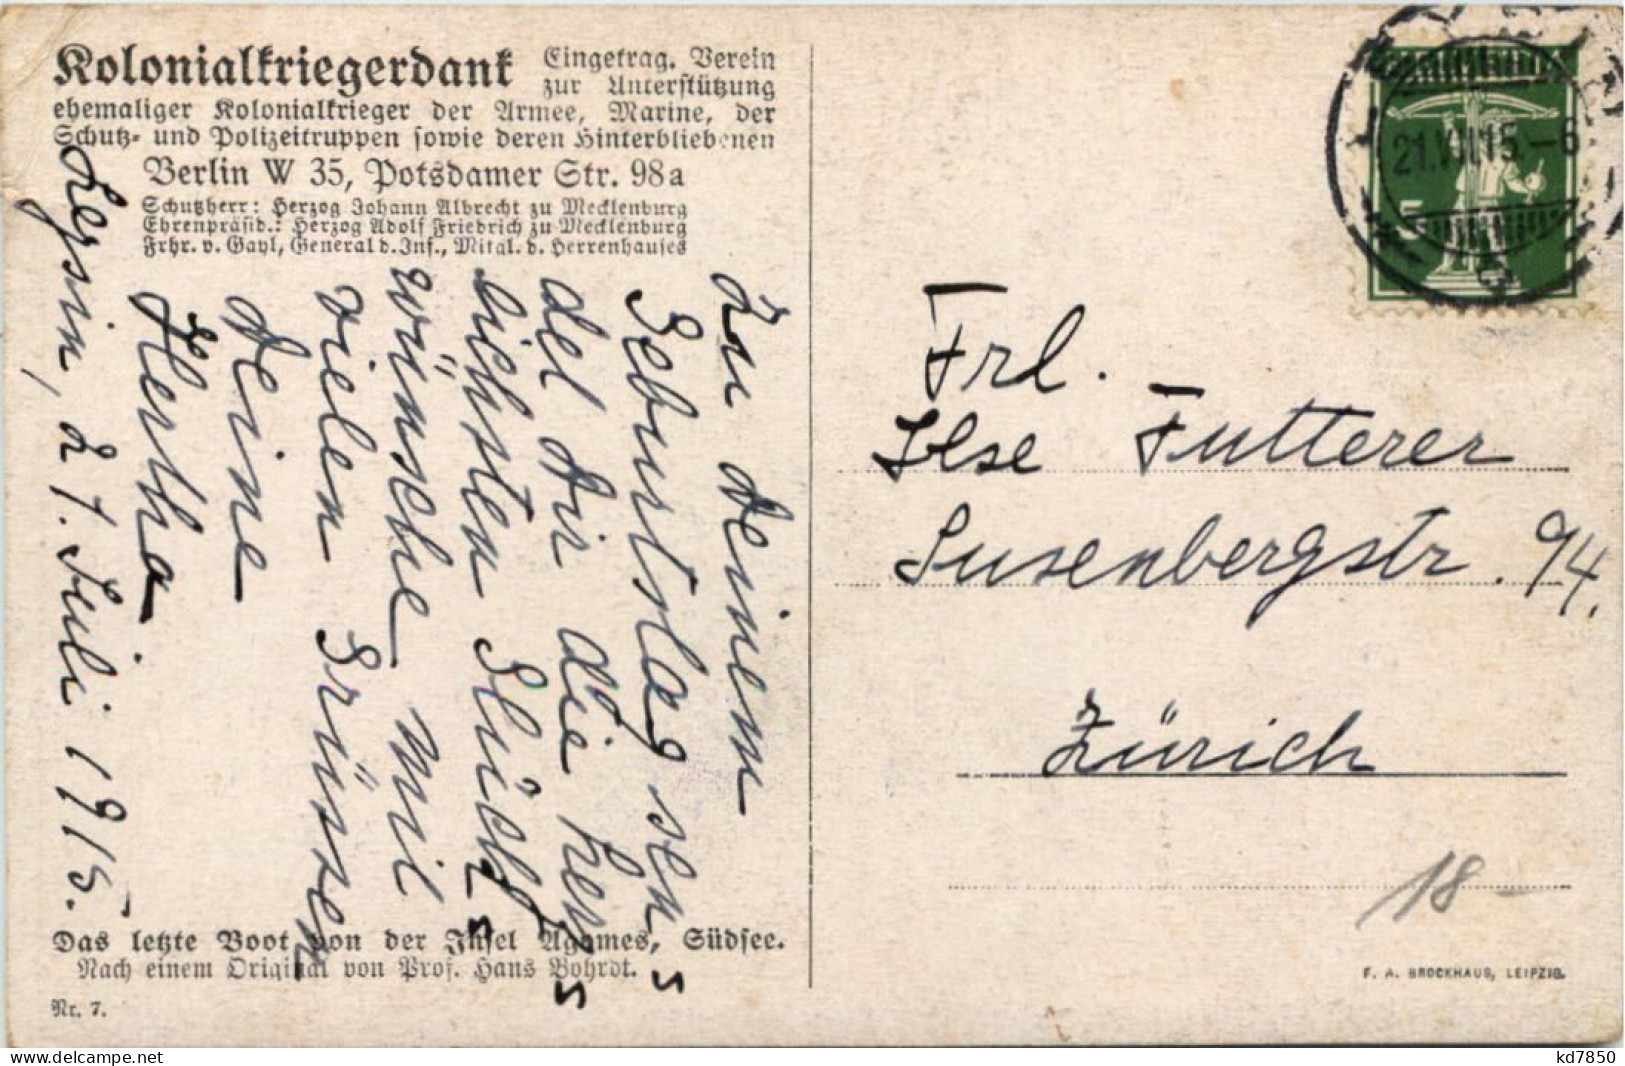 Kolonialkriegerdank Eingetrag. Verein
zur Unterstützung
ehemaliger Kolonialkrieger der Armee, Marine, der
Schutz- und Polizeitruppen sowie deren Hinterbliebenen
Berlin W 35, Potsdamer Str. 98a
Schutzherr: Herzog Johann Albrecht zu Mecklenburg
Ehrenpräsid.: Herzog Adolf Friedrich zu Mecklenburg
Frhr. v. Gayl, General d. Inf., Mitgl. d. Herrenhauses
Zu deinem
Geburtstag sen-
det dir die herz-
lichsten Glück-
wünsche mit
vielen Grüssen
deine
Hertha
Leysin, 21. Juli 1915.
Das letzte Boot von der Insel Agomes, Südsee.
Nach einem Original von Prof. Hans Bohrdt.
Nr. 7.
21.VII.15.-6
5
Frl.
Ilse Futterer
Susenbergstr. 94.
Zürich
18-
F. A. BROCKHAUS, LEIPZIG.
kd7850